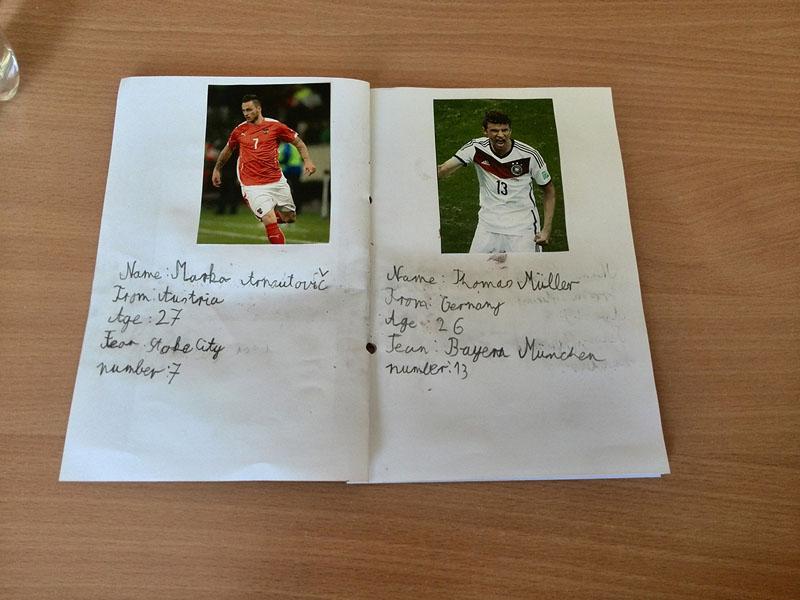 7
Name: Marko Arnautovič
From: Austria
Age: 27
Team: Stoke City
number: 7
13
Name: Thomas Müller
From: Germany
Age: 26
Team: Bayern München
number: 13